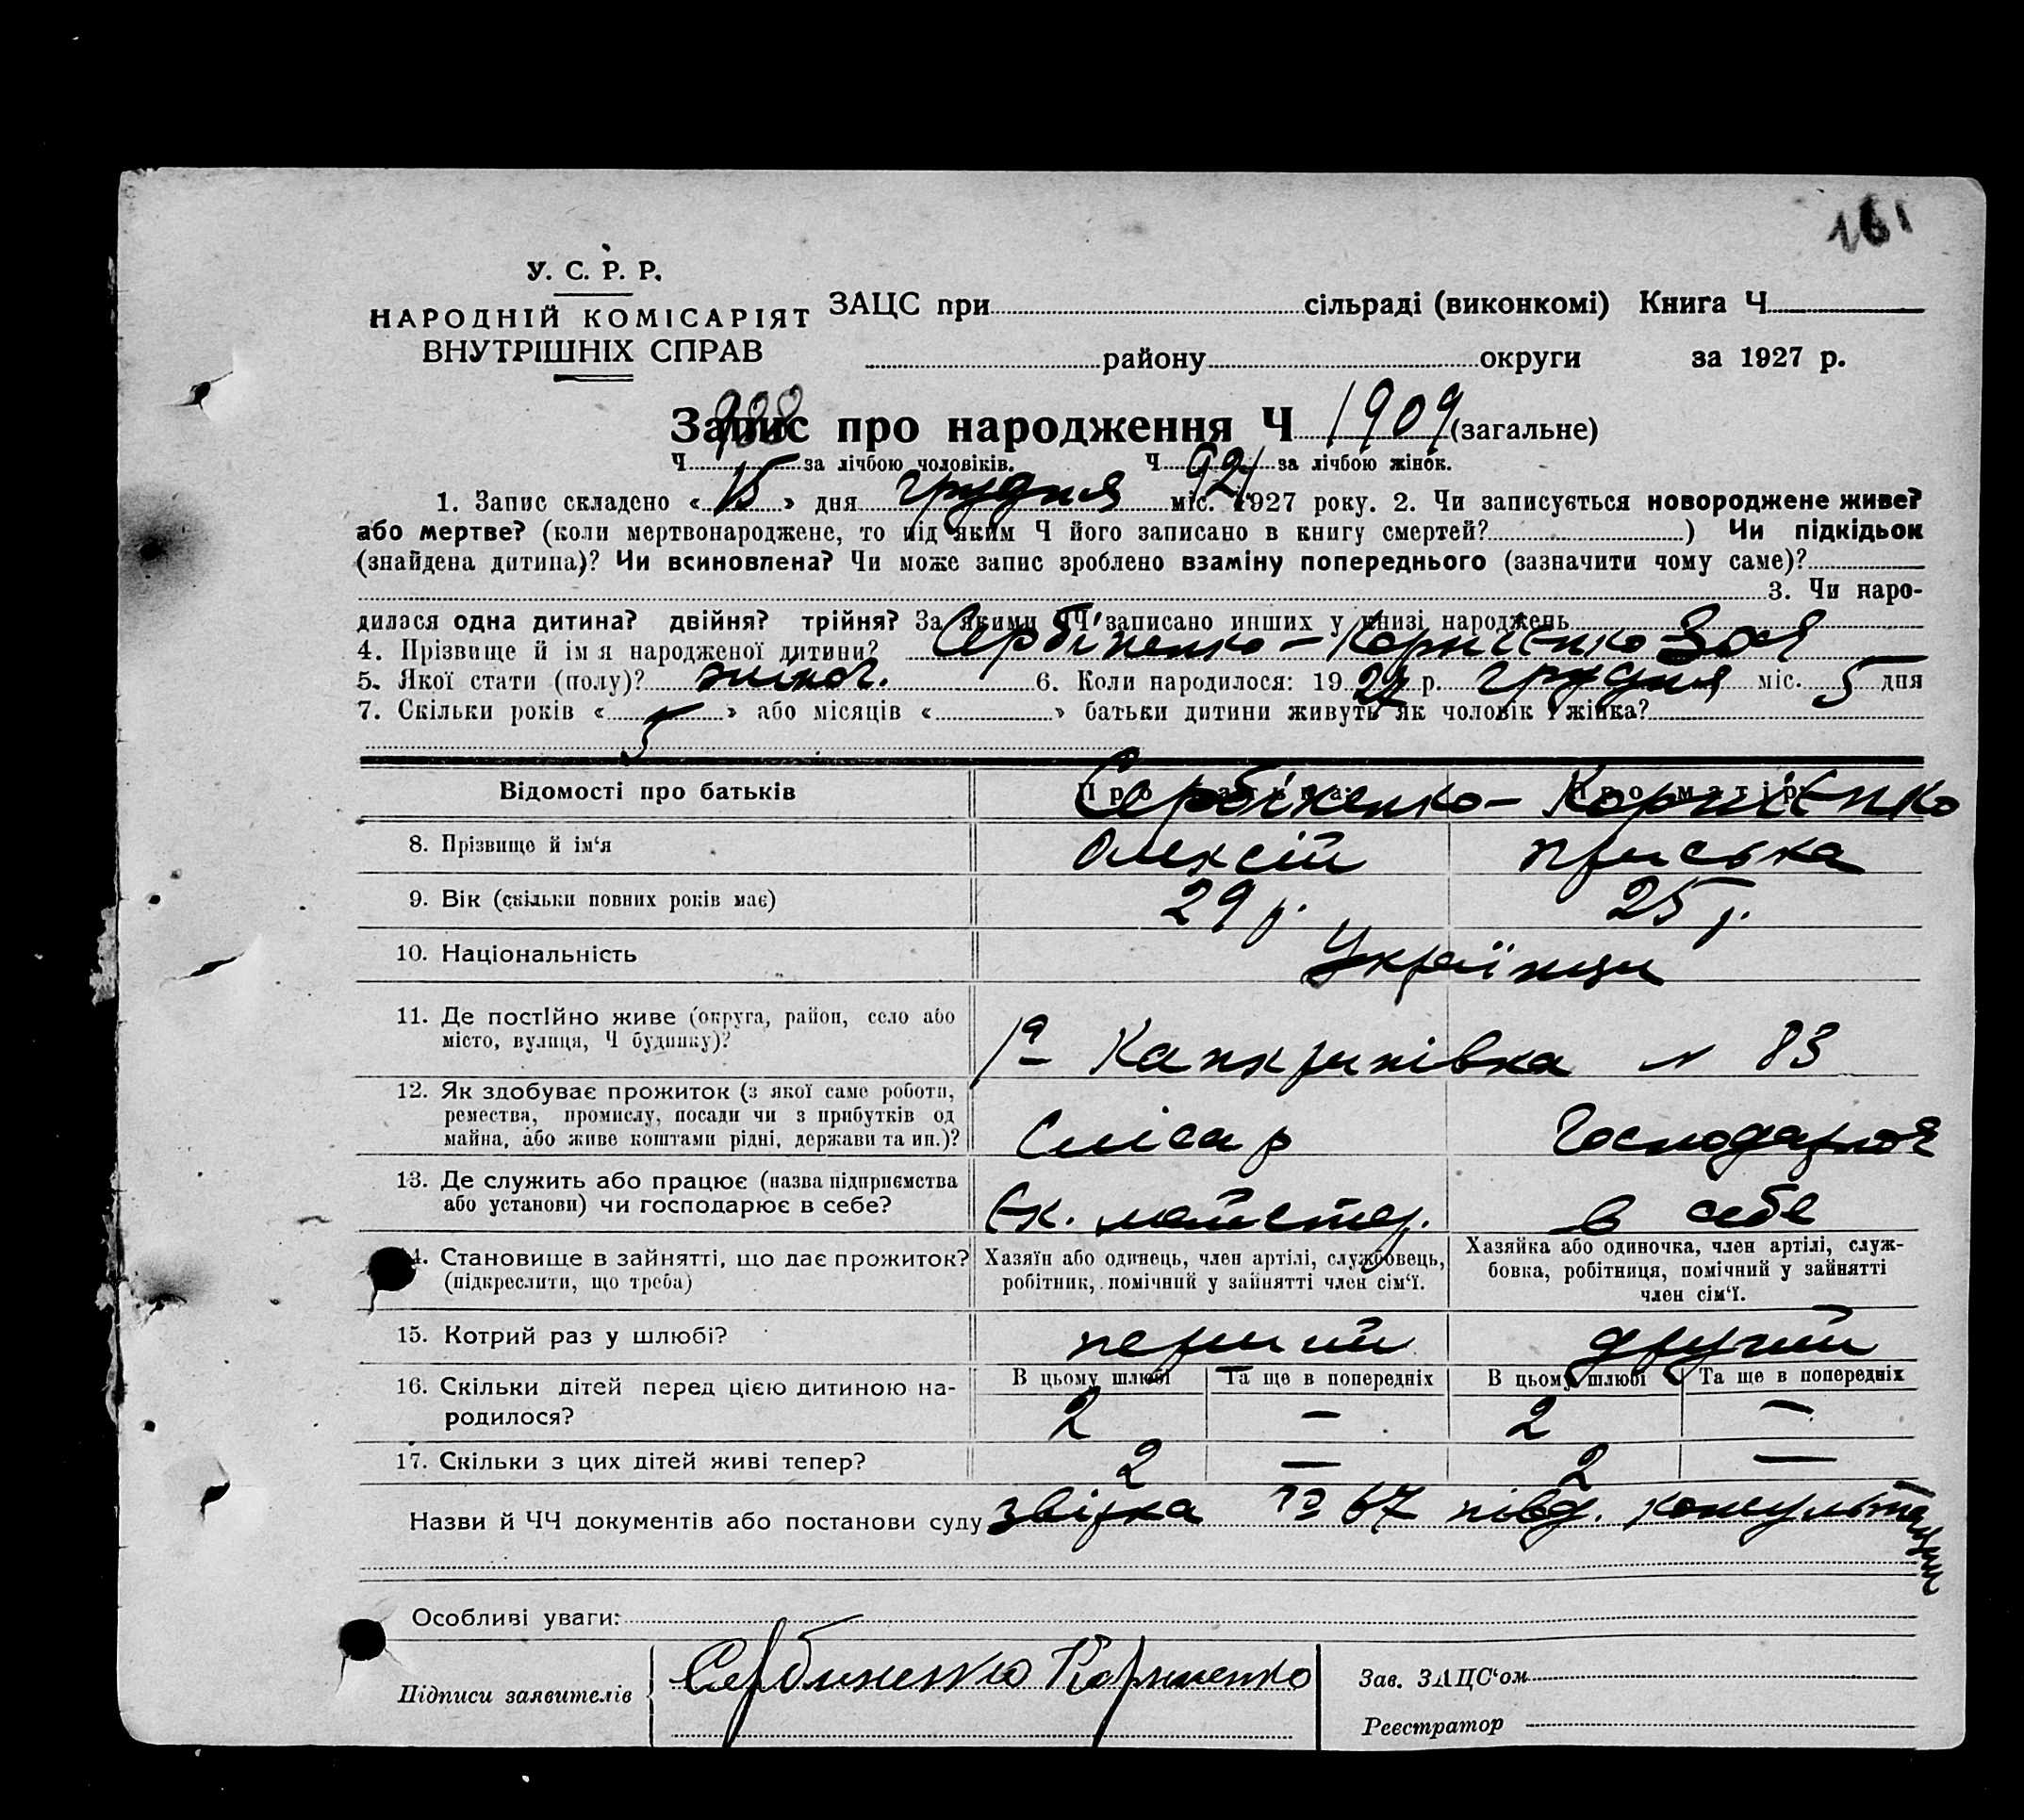 161
У. С. Р. Р.
НАРОДНІЙ КОМІСАРІЯТ
ВНУТРІШНІХ СПРАВ
ЗАЦС при сільраді (виконкомі) Книга Ч
району округи за 1927 р.
Запис про народження Ч 1909 (загальне)
Ч за лічбою чоловіків. Ч 921 за лічбою жінок.
1. Запис складено « 15 » дня грудня міс. 1927 року. 2. Чи записується новороджене живе?
або мертве? (коли мертвонароджене, то під яким Ч його записано в книгу смертей? ) Чи підкідьок
(знайдена дитина)? Чи всиновлена? Чи може запис зроблено взаміну попереднього (зазначити чому саме)?
3. Чи наро-
дилася одна дитина? двійня? трійня? За якими ЧЧ записано инших у книзі народжень
4. Прізвище й ім я народженої дитини? Сербіненко - Корнієнко Зоя
5. Якої стати (полу)? жіноч. 6. Коли народилося: 19 27 р. грудня міс. 5 дня
7. Скільки років « 5 » або місяців « » батьки дитини живуть як чоловік і жінка?
Відомості про батьків Про батька Про матір
Сербіненко - Корнієнко
8. Прізвище й ім‘я Олексій Приська
9. Вік (скільки повних років має) 29 р. 25 р.
10. Національність Українци
11. Де постійно живе (округа, район, село або
місто, вулиця, Ч будинку)? Канкринівка N 83
12. Як здобуває прожиток (з якої саме роботи,
ремества, промислу, посади чи з прибутків од
майна, або живе коштами рідні, держави та ин.)? Слісар Господарює
13. Де служить або працює (назва підприємства
або установи) чи господарює в себе? Єк. майстер. в себе
14. Становище в зайнятті, що дає прожиток?
(підкреслити, що треба)
Хазяїн або одинець, член артілі, службовець,
робітник, помічний у зайнятті член сім‘ї.
Хазяйка або одиночка, член артілі, служ-
бовка, робітниця, помічний у зайнятті
член сім‘ї.
15. Котрий раз у шлюбі? перший другий
В цьому шлюбі Та ще в попередніх В цьому шлюбі Та ще в попередніх
16. Скільки дітей перед цією дитиною на-
родилося? 2 — 2 —
17. Скільки з цих дітей живі тепер? 2 — 2 —
Назви й ЧЧ документів або постанови суду звірка 67 півд. консультации
Особливі уваги:
Підписи заявителів Сербиненко Корниенко
Зав. ЗАЦС‘ом
Реєстратор